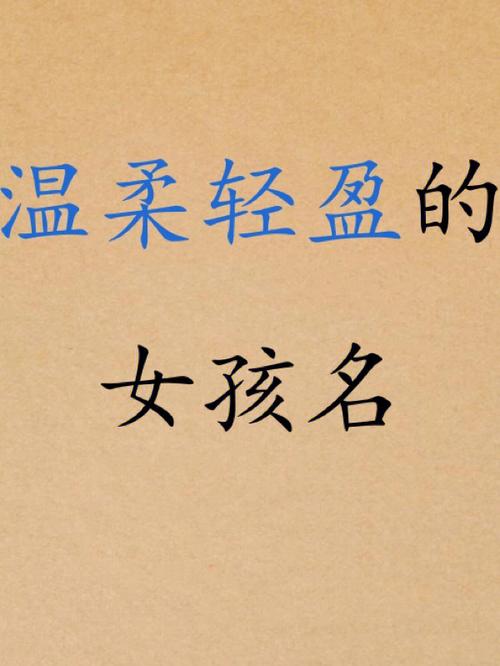 温柔轻盈的
女孩名